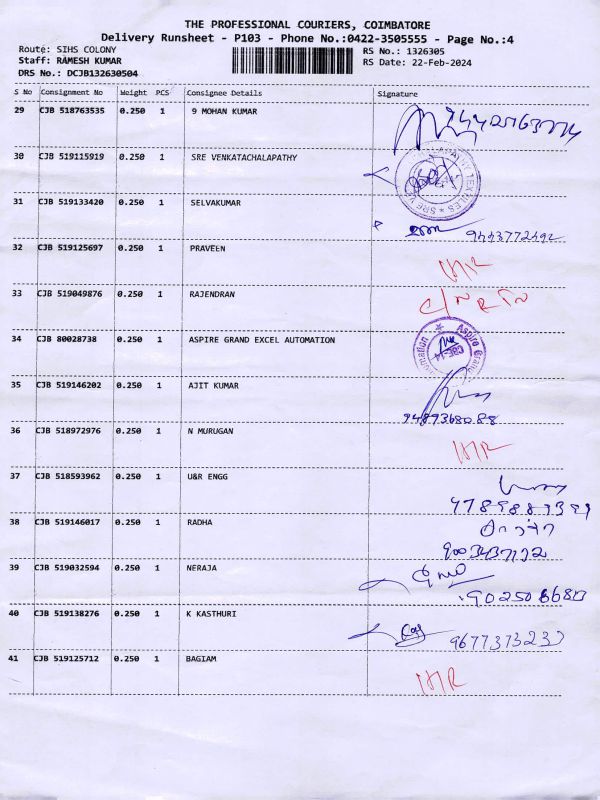 THE PROFESSIONAL COURIERS, COIMBATORE
Delivery Runsheet - P103 - Phone No.:0422-3505555 - Page No.:4
Route: SIHS COLONY
RS No.: 1326305
Staff: RAMESH KUMAR
RS Date: 22-Feb-2024
DRS No.: DCJB132630504
S No Consignment No Weight PCS Consignee Details Signature
29 CJB 518763535 0.250 1 9 MOHAN KUMAR
30 CJB 519115919 0.250 1 SRE VENKATACHALAPATHY
31 CJB 519133420 0.250 1 SELVAKUMAR
32 CJB 519125697 0.250 1 PRAVEEN
33 CJB 519049876 0.250 1 RAJENDRAN
34 CJB 80028738 0.250 1 ASPIRE GRAND EXCEL AUTOMATION
35 CJB 519146202 0.250 1 AJIT KUMAR
9489368088
36 CJB 518972976 0.250 1 N MURUGAN
37 CJB 518593962 0.250 1 U&R ENGG
38 CJB 519146017 0.250 1 RADHA
39 CJB 519032594 0.250 1 NERAJA
40 CJB 519138276 0.250 1 K KASTHURI
41 CJB 519125712 0.250 1 BAGIAM